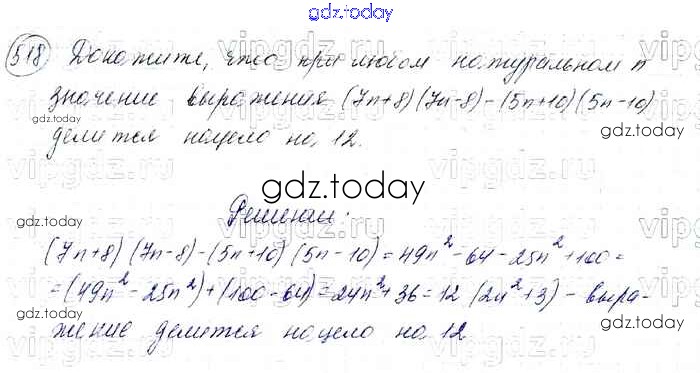 gdz.today
518 Докажите, что при любом натуральном n
значение выражения (7n+8)(7n-8)-(5n+10)(5n-10)
gdz.today
делится нацело на 12.
gdz.today
gdz.today
Решение:
gdz.today
(7n+8)(7n-8)-(5n+10)(5n-10)=49n²-64-25n²+100=
=(49n²-25n²)+(100-64)=24n²+36=12(2n²+3) - выра-
gdz.today
жение делится нацело на 12
gdz.today